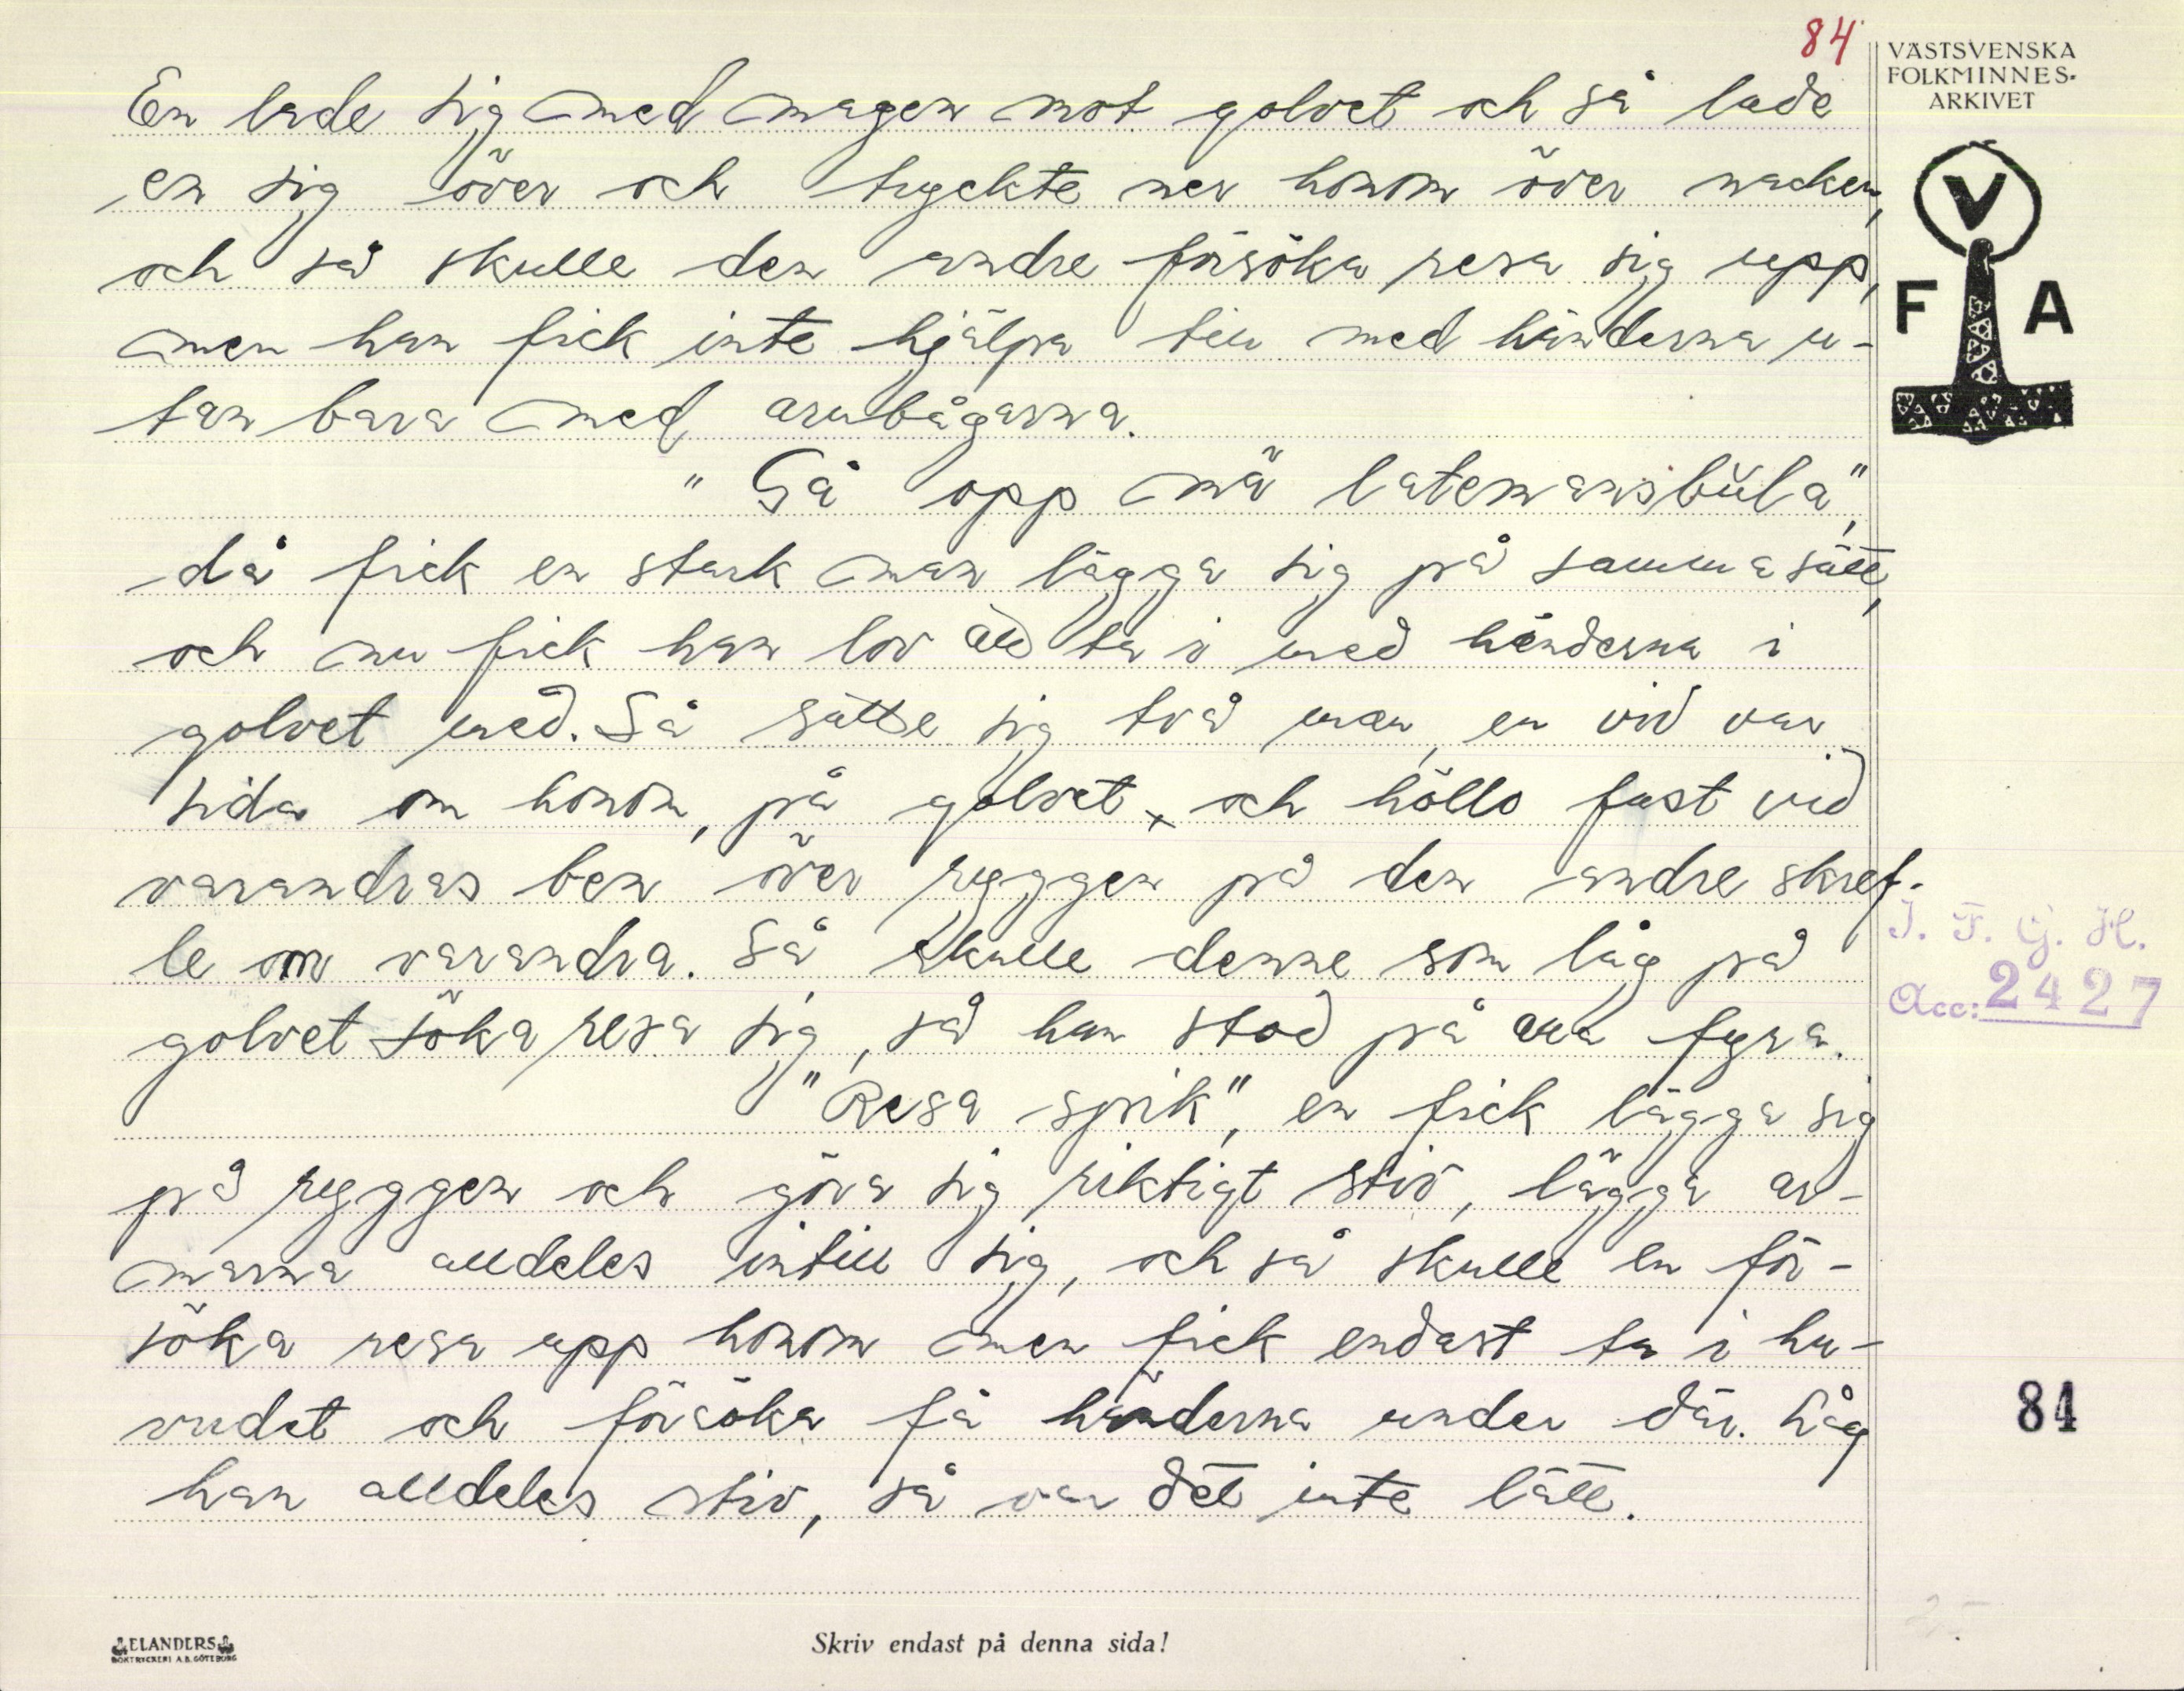 84
VÄSTSVENSKA
FOLKMINNES-
ARKIVET
V
F A
En lade sig med magen mot golvet och så lade
en sig över och tryckte ner honom över nacken,
och så skulle den andre försöka resa sig upp,
men han fick inte hjälpa till med händerna u-
tan bara med armbågarna.
"Gå opp mä latemansbüla",
då fick en stark man lägga sig på samma sätt,
och nu fick han lov att ta i med händerna i
golvet med. Så satte sig två man, en vid var
sida om honom, på golvet, och höllo fast vid
varandras ben över ryggen på den andre skref-
le om varandra. Så skulle denne som låg på
golvet söka resa sig, så han stod på alla fyra.
"Resa spik", en fick lägga sig
på ryggen och göra sig riktigt stiv, lägga ar-
marna alldeles intill sig, och så skulle en för-
söka resa upp honom men fick endast ta i hu-
vudet och försöka få händerna under där. Låg
han alldeles stiv, så var det inte lätt.
I. F. G. H.
Acc: 2427
84
ELANDERS
BOKTRYCKERI A.B. GÖTEBORG
Skriv endast på denna sida!